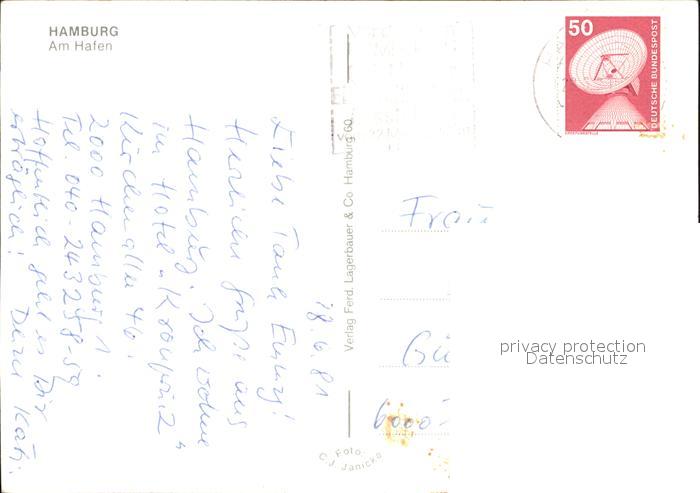 HAMBURG
Am Hafen
50
DEUTSCHE BUNDESPOST
ERDEFUNKSTELLE
18.6.81
Liebe Tante Emmy!
Herzliche Grüße aus
Hamburg. Ich wohne
im Hotel "Kronprinz"
Kirchenallee 46.
2000 Hamburg 1.
Tel. 040-243258-59
Hoffentlich geht es Dir
erträglich! Deine Käth.
Verlag Ferd. Lagerbauer & Co Hamburg 60
Foto:
C.J. Janicke
Frau
6000-
privacy protection
Datenschutz